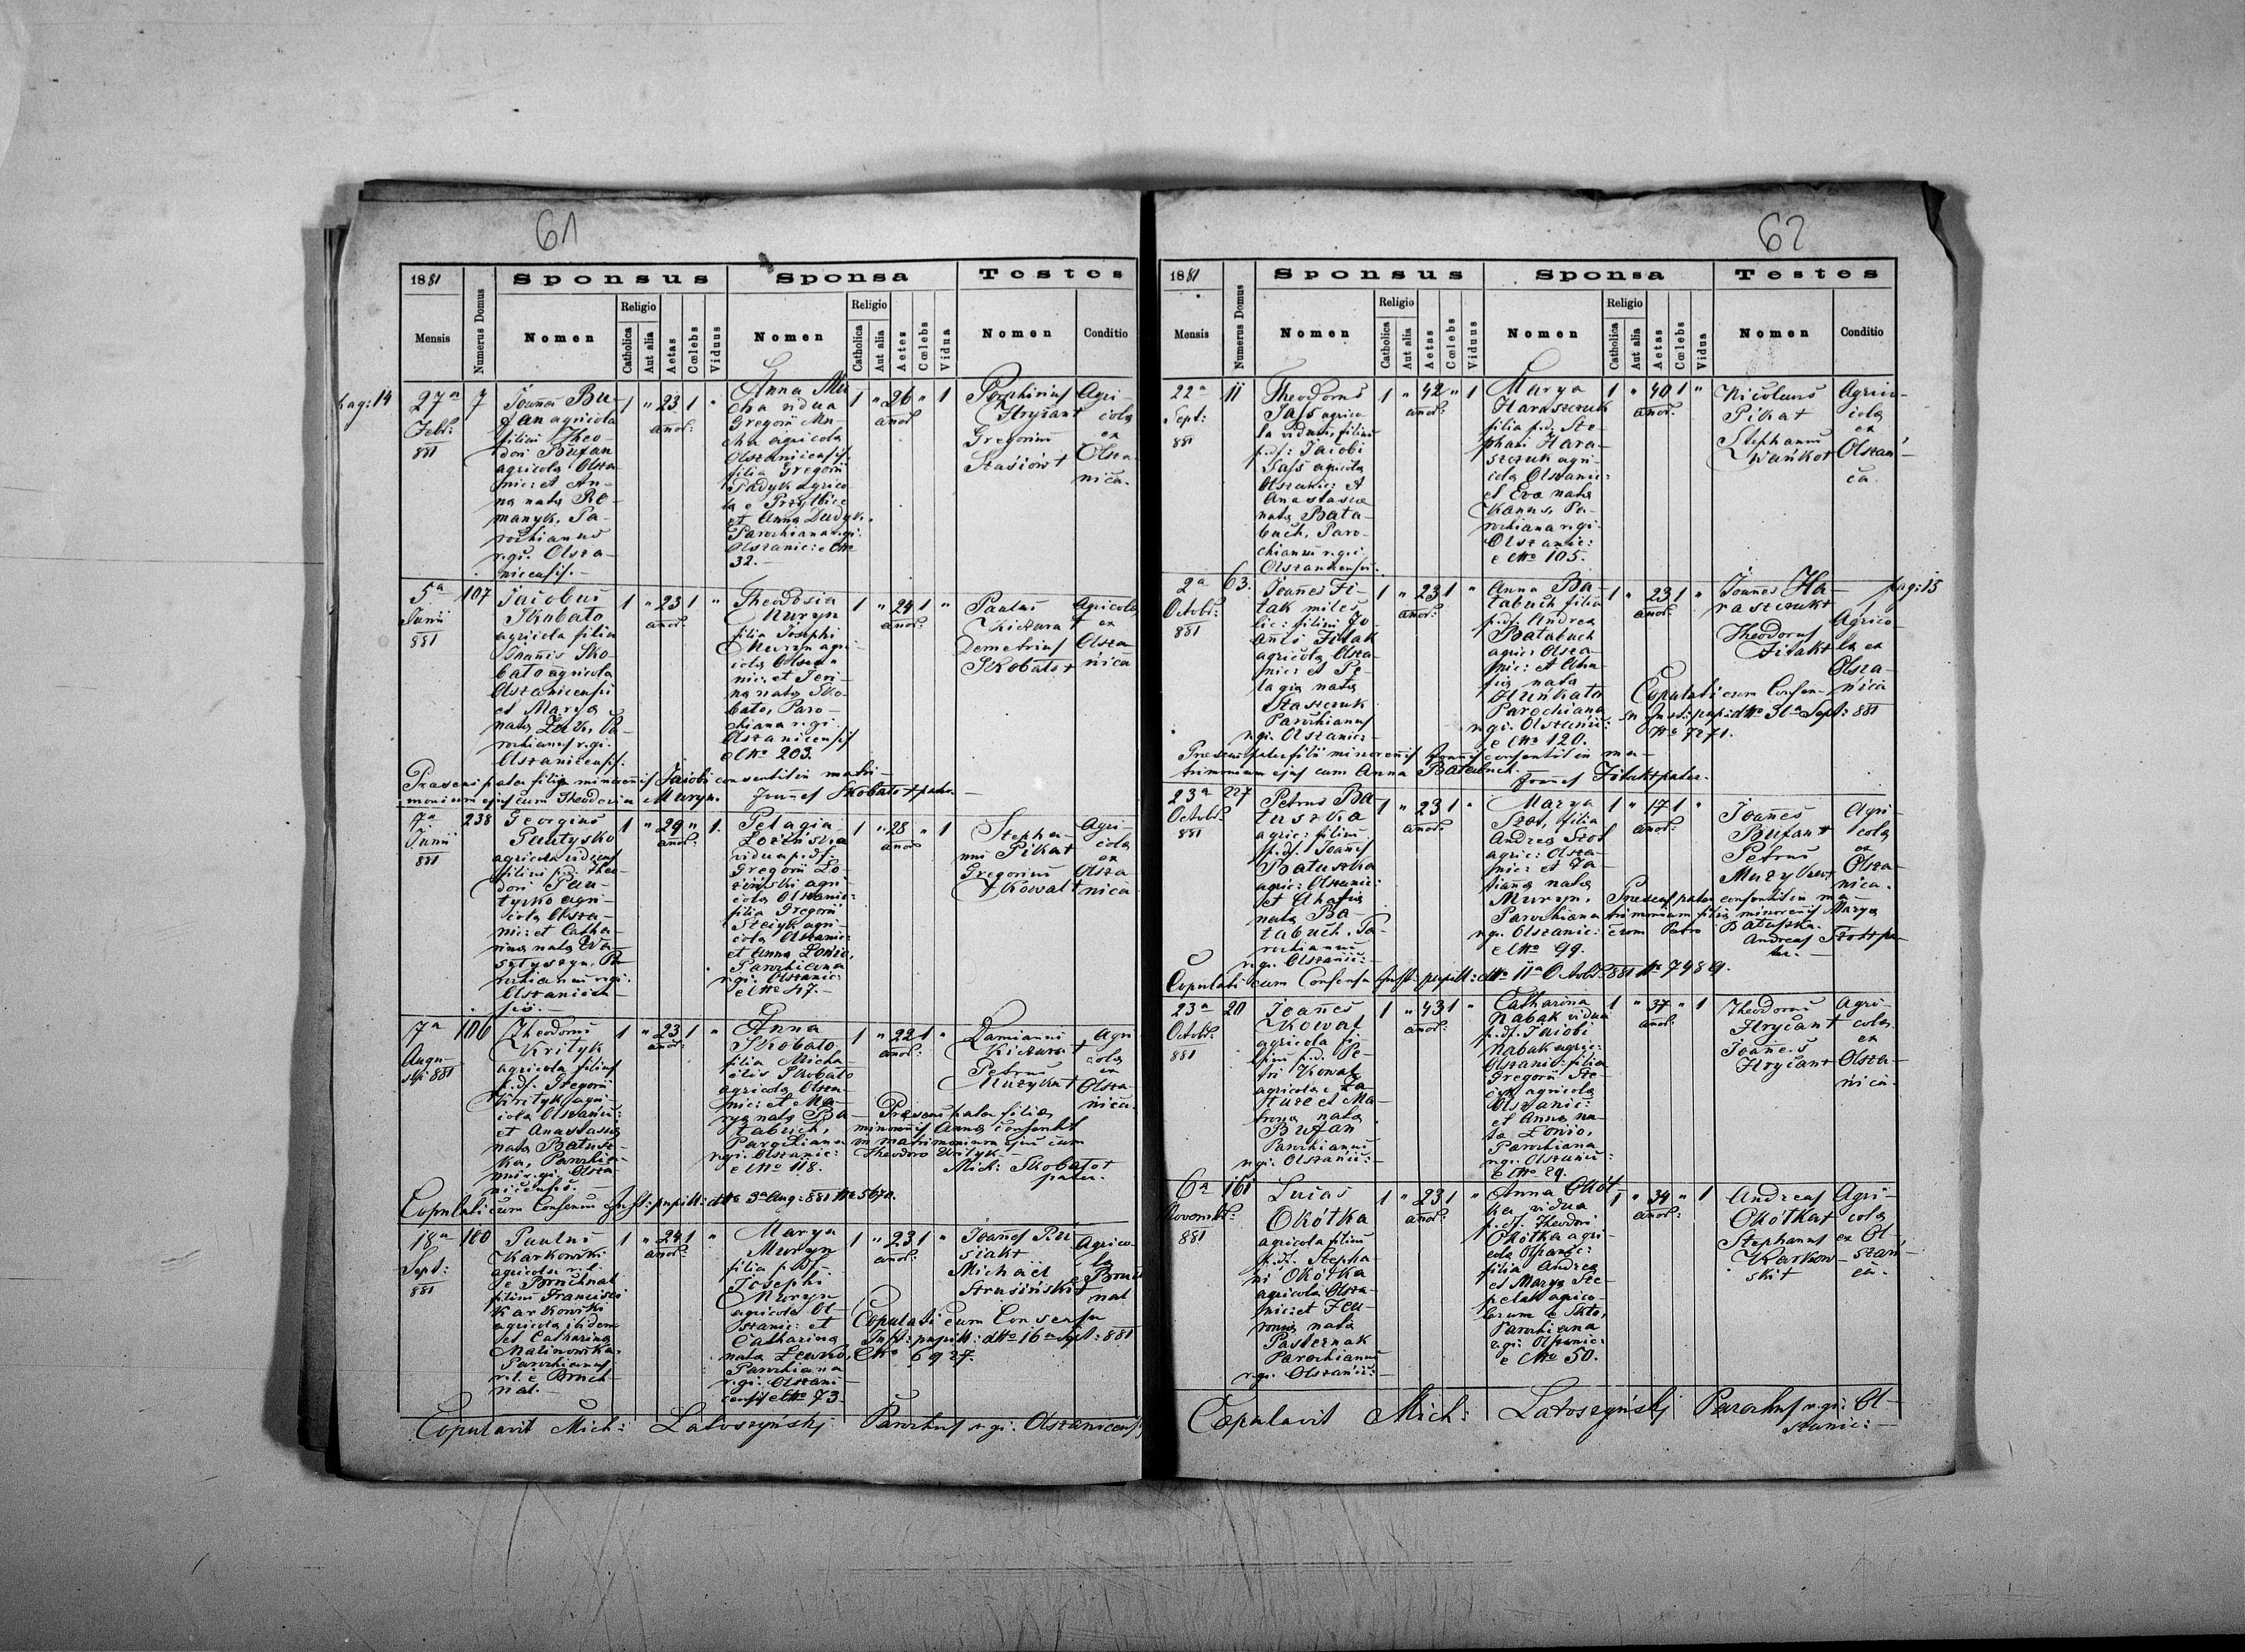 61
1881
Sponsus
Sponsa
Testes
Mensis
Numerus Domus
Nomen
Religio
Catholica
Aut alia
Aetas
Cœlebs
Viduus
Nomen
Religio
Catholica
Aut alia
Aetes
Cœlebs
Vidua
Nomen
Conditio
pag: 14
27a
Febr:
881
7
Joannes Bu-
fan agricola
filius Theo-
dori Bufan
agricola Olsza-
nic: et An-
na nata Ro-
manyk, Pa-
rochianus
r.gi. Olsza-
nicensis.-
1 " 23 1 "
annor:
Anna Mu
cha vidua
Gregorii Mu-
cha agricola
Olszanicensis.
filia Gregorii
Padyk agrico-
la e Przyłbice
et Anna Dudyk.
Parochiana r.gi.
Olszanic: e No
32.-
1 " 26 " 1
annor
Porphirius
Hryżan +
Gregorius
Stasiów +
Agri-
cola
ex
Olsza-
nica.
5a
Junii
881
107
Jacobus
Skobało
agricola filius
Joannis Sko-
bało agricola
Olszanicensis
et Marya
nata Zack, Pa-
rochianus r.gi.
Olszanicensis.
1 " 23 1 "
annor:
Theodosia
Muryn
filia Josephi
Muryn agri-
cola Olsza-
nic: et Iri-
na nata Sko-
bało, Paro-
chiana r.gi.
Olszanicensis
e No 203.
1 " 24 1 "
annor:
Paulus
Kiczura +
Demetrius
Skobało +
Agricola
ex
Olsza-
nica
Praesens pater filii minorennis Jacobi consentit in matri-
monium ejus cum Theodosia Muryn. Joannes Skobało + pater.-
7a
Junii
881
238
Georgius
Pautysko
agricola viduus
filius p.d. Theo-
dori Pau-
tysko agri-
cola Olsza-
nic: et Catha-
rina nata Wa-
sylyszyn, Pa-
rochianus r.gi.
Olszanicen-
sis.-
1 " 29 " 1.
annor:
Pelagia
Łozińska
vidua p.df.
Gregorii Ło-
ziński agri-
cola Olszanic:
filia Gregorii
Steciyk agri-
cola Olszanic:
et Anna Łonio,
Parochiana
r.gi. Olszanic:
e No 47.-
1 " 28 " 1
annor
Stepha-
nus Pika +
Gregorius
+ Kowal +
Agri-
cola
ex
Olsza-
nica
7a
Augu-
sti 881
106
Theodorus
Krityk
agricola filius
p.df. Gregorii
Krityk agri-
cola Olszanic:
et Anastasia
nata Batusz-
ka, Parochia-
nus r.gi. Olsza-
nicensis.-
1 " 23 1 "
annor:
Anna
Skobało
filia Micha-
elis Skobało
agricola Olsza-
nic: et Ma-
rya nata Ba-
tabuch,
Parochiana
r.gi. Olszanic:
e No 118.
1 " 22 1 "
annor:
Damianus
Kiczura +
Petrus
Muzyka +
Agri
cola
ex
Olsza-
nica.
Praesens pater filiae
minorennis Anna consentit
in matrimonium ejus cum
Theodoro Krityk.-
Mich: Skobało +
pater.
Copulati cum Consensu Inst: pupill: dtto 3a Aug: 881 No 5670.
18a
Sept:
881
160
Paulus
Karkowski
agricola r.l.
e Bruchnal
filius Francisci
Karkowski
agricola ibidem
et Catharina
Malinowska.
Parochianus
r.l. e Bruch-
nal.-
1 " 24 1 "
annor:
Marya
Muryn
filia p.df.
Josephi
Muryn
agricola Ol-
szanic: et
Catharina
nata Lewko,
Parochiana
r.gi. Olszani-
censis e No 73.
1 " 23 1 "
annor:
Joannes Ru-
siak +
Michael
Strusiński +
Agrico-
la
e Bruch
nal
Copulati cum Consensu
Inst: pupill: dtto 16a Sept: 881
No 6927.
Copulavit Mich: Łatoszyńskj Parochus r.gi. Olszanicensis
62
1881
Sponsus
Sponsa
Testes
Mensis
Numerus Domus
Nomen
Religio
Catholica
Aut alia
Aetas
Cœlebs
Viduus
Nomen
Religio
Catholica
Aut alia
Aetas
Cœlebs
Vidua
Nomen
Conditio
22a
Sept:
881
11
Theodorus
Sass agrico-
la viduus, filius
p.df: Jacobi
Sass agricola
Olszanic: et
Anastasia
nata Bata-
buch, Paro-
chianus r.gi.
Olszanicensis.
1 " 42 " 1
annor:
Marya
Haraszczuk
filia p.d. Ste-
phani Hara-
szczuk agri-
cola Olszanic:
et Eva nata
Kanus, Pa-
rochiana r.gi.
Olszanic:
e No 105.
1 " 40 1 "
annor:
Nicolaus
Pika +
Stephanus
Wańko +
Agrico-
cola
ex
Olszani-
ca.
pag: 15
2a
Octob:
881
63.
Joannes Fi-
tak miles
lic: filius Jo-
annis Fitak
agricola Olsza-
nic: et Pe-
lagia nata
Staszczuk
Parochianus
r.gi. Olszanic:-
1 " 23 1 "
annor:
Anna Ba-
tabuch filia
p.df. Andrea
Batabuch
agric: Olsza-
nic: et Aha-
fia nata
Huńkało
Parochiana
r.gi. Olszanic:
e No 120.
1 " 23 1 "
annor:
Joannes Ha-
raszczuk +
Theodorus
Fitak +
Agrico-
la ex
Olsza-
nica
Copulati cum Consen-
su Inst: pup: dtto 31a Sept: 881
No 7271.
Praesens pater filii minorennis Joannis consentit in ma-
trimonium ejus cum Anna Batabuch. Joannes Fitak + pater.
23a
Octob:
881
227
Petrus Ba-
tuszka
agric: filius
p.df. Joannis
Batuszka
agric: Olszanic:
et Ahafia
nata Ba-
tabuch, Pa-
rochianus
r.gi. Olszanic:
1 " 23 1 "
annor:
Marya
Szot, filia
Andrea Szot
agric: Olsza-
nic: et Ta-
tianna nata
Muryn,
Parochiana
r.gi. Olszanic:
e No 99.
1 " 17 1 "
annor:
Joannes
Bufan +
Petrus
Muzyka +
Agri
cola
ex
Olsza-
nica.
Praesens pater consentit in ma-
trimonium filia minorennis Marya
cum Petro Batuszka.
Andreas Szot + pa-
ter.-
Copulati cum Consensu Inst: pupill: dtto 11a Octob: 881 No 7489.
23a
Octob:
881
20
Joannes
Kowal
agricola fi-
lius p.d. Pe-
tri Kowal
agricola e Za-
łuże et Ma-
trona nata
Bufan
Parochianus
r.gi. Olszanic:-
1 " 43 1 "
annor:
Catharina
Nabak vidua
p.df. Jacobi
Nabak agric:
Olszanic: filia
Gregorii Ste-
ciyk agricola
Olszanic:
et Anna na-
ta Łonio,
Parochiana
r.gi. Olszanic:
e No 29.
1 " 37 " 1
annor:
Theodorus
Hryżan +
Joannes
Hryżan +
Agri-
cola
ex
Olsza-
nica.
6a
Novemb:
881
161
Lucas
Okótka
agricola filius
p.df. Stepha-
ni Okótka
agricola Olsza-
nic: et Feu-
ronia nata
Pasternak
Parochianus
r.gi. Olszanic:-
1 " 23 1 "
annor:
Anna Okót
ka vidua
p.df. Theodori
Okótka agri-
cola Olszanic:
filia Andrea
et Marya Ste-
pelak agrico-
larum e Skło,
Parochiana
r.gi. Olszanic:
e No 50.
1 " 34 " 1
annor:
Andreas
Okótka +
Stephanus
Karkow-
ski +
Agri-
cola
ex Ol-
szani-
ca.-
Copulavit Mich: Łatoszyńskj Parochus r.gi. Ol-
szanic:-